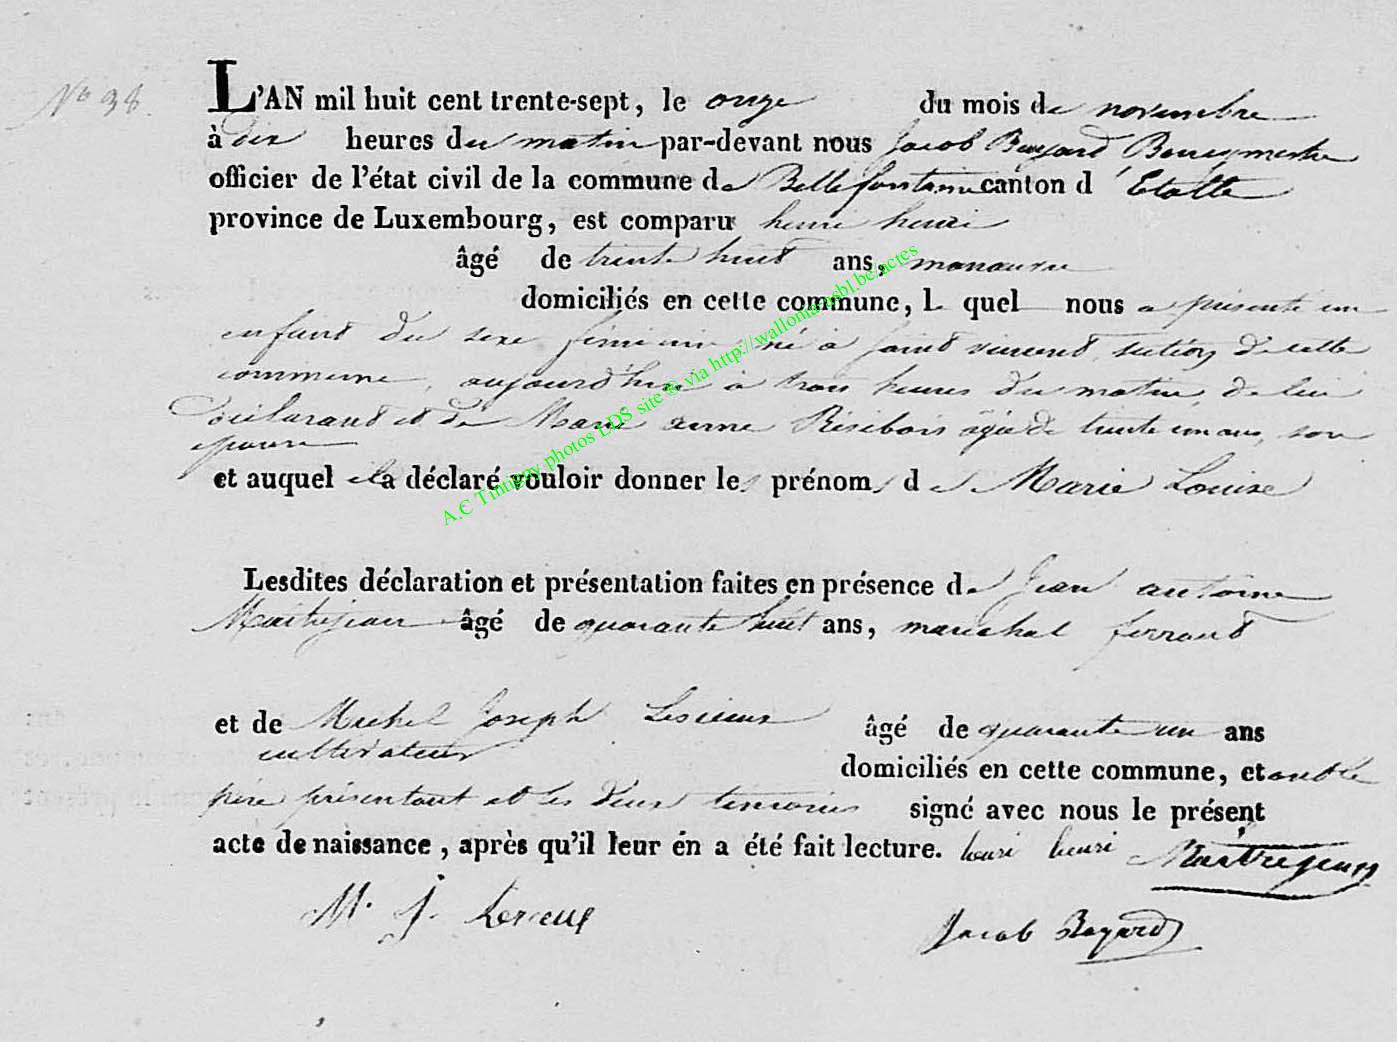 No 38.
L'AN mil huit cent trente-sept, le onze du mois de novembre
à dix heures du matin par-devant nous Jacob Bayard Bourgmestre
officier de l'état civil de la commune de Bellefontaine canton d'Etalle
province de Luxembourg, est comparu henri henri
âgé de trente huit ans, manœuvre
domiciliés en cette commune, L quel nous a présenté un
enfant du sexe féminin né à saint vincent, section de cette
commune, aujourd'hui à trois heures du matin, de lui
déclarant et de Marie anne Résibois âgée de trente un ans, son
épouse
et auquel il a déclaré vouloir donner les prénoms de Marie Louise
Lesdites déclaration et présentation faites en présence de Jean antoine
Maitrejean âgé de quarante huit ans, maréchal ferrant
et de Michel Joseph Lesieur âgé de quarante un ans
cultivateur
domiciliés en cette commune, et ont le
père présentant et les deux temoins signé avec nous le présent
acte de naissance, après qu'il leur en a été fait lecture. henri henri Maitrejean
M. J. Lesieur
Jacob Bayard
A.C Tintigny photos LDS site © via http://wallonia-asbl.be/actes